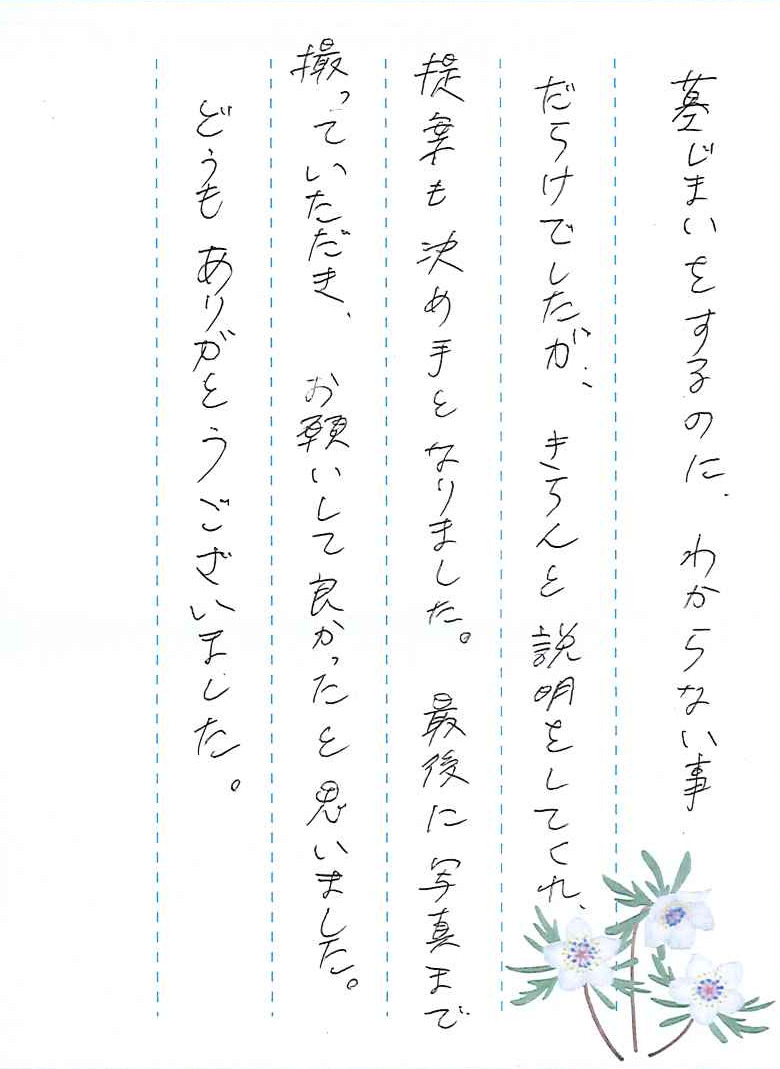 墓じまいをするのに、わからない事
だらけでしたが、きちんと説明をしてくれ、
提案も決め手となりました。最後に写真まで
撮っていただき、お願いして良かったと思いました。
どうもありがとうございました。